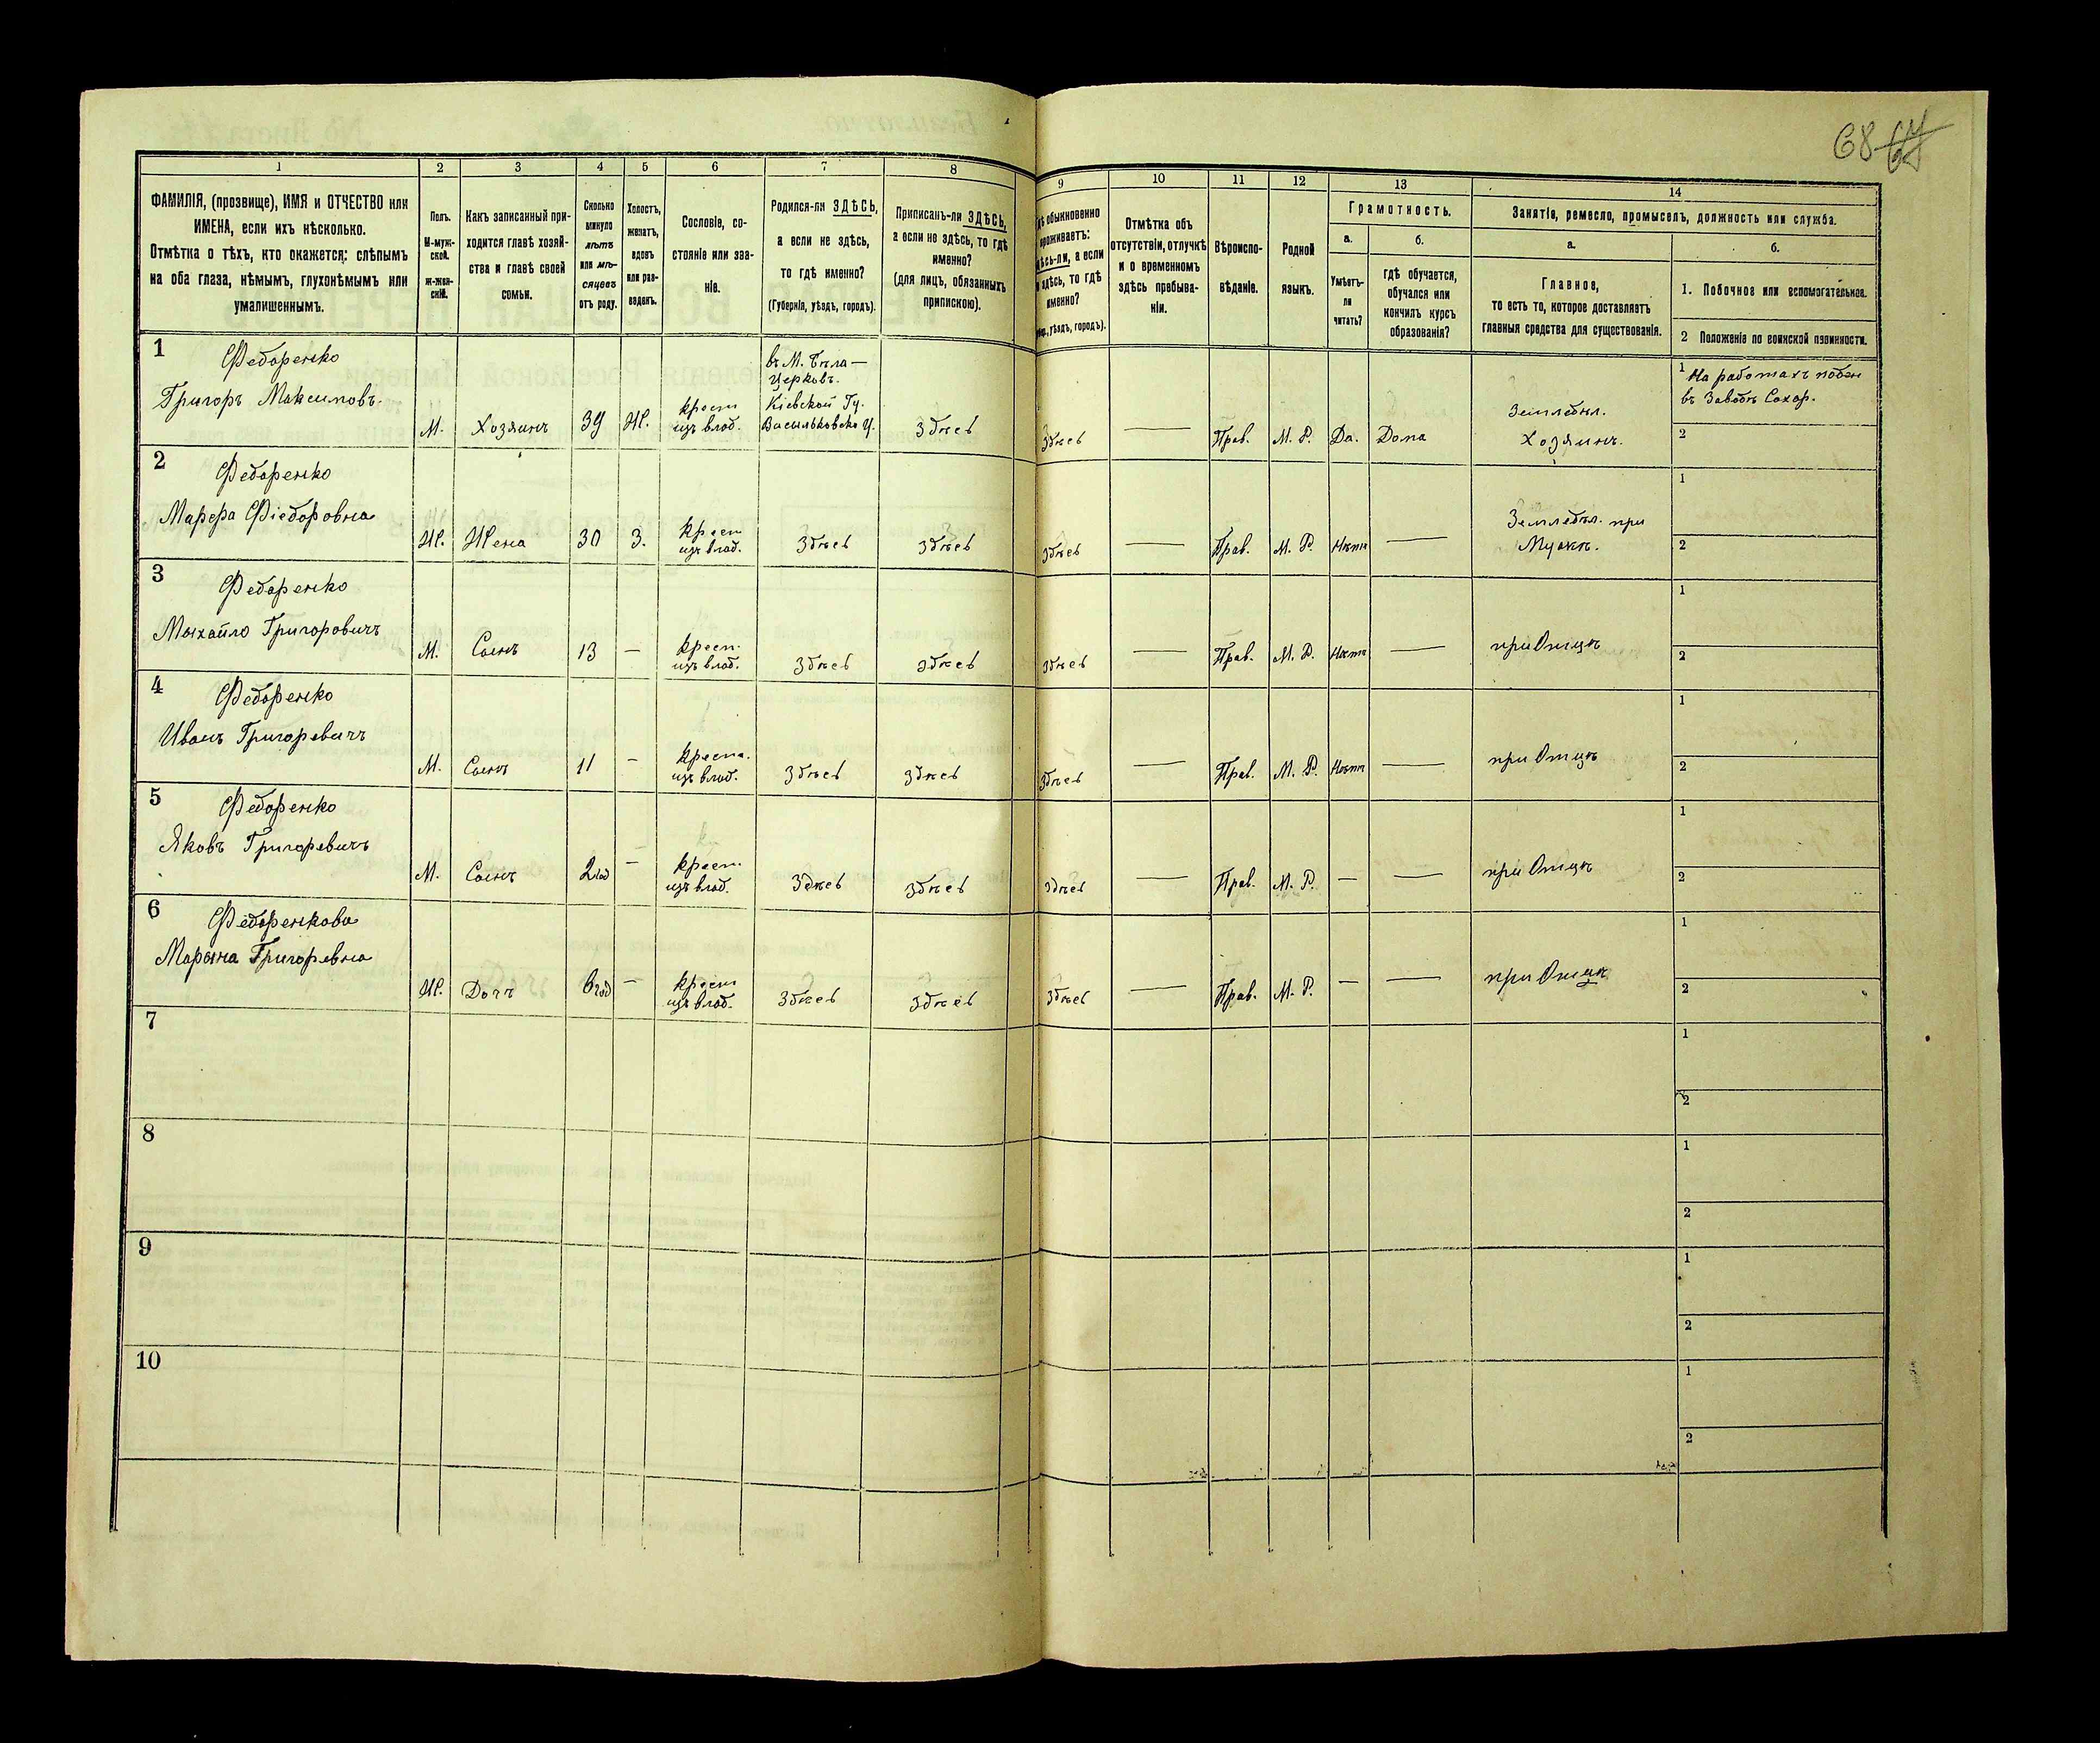 68 67
1
2
3
4
5
6
7
8
9
10
11
12
13
14
ФАМИЛІЯ, (прозвище), ИМЯ и ОТЧЕСТВО или
ИМЕНА, если ихъ нѣсколько.
Отмѣтка о тѣхъ, кто окажется: слѣпымъ
на оба глаза, нѣмымъ, глухонѣмымъ или
умалишеннымъ.
Полъ.
М-муж-
ской.
ж-жен-
скій.
Какъ записанный при-
ходится главѣ хозяй-
ства и главѣ своей
семьи.
Сколько
минуло
лѣтъ
или мѣ-
сяцевъ
отъ роду.
Холостъ,
женатъ,
вдовъ
или раз-
веденъ.
Сословіе, со-
стояніе или зва-
ніе.
Родился-ли ЗДѢСЬ,
а если не здѣсь,
то гдѣ именно?
(Губернія, уѣздъ, городъ).
Приписанъ-ли ЗДѢСЬ,
а если не здѣсь, то гдѣ
именно?
(для лицъ, обязанныхъ
припискою).
обыкновенно
проживаетъ:
а если
здѣсь, то гдѣ
именно?
уѣздъ, городъ).
Отмѣтка объ
отсутствіи, отлучкѣ
и о временномъ
здѣсь пребыва-
ніи.
Вѣроиспо-
вѣданіе.
Родной
языкъ.
Грамотность.
а.
Умѣетъ-
ли
читать?
б.
гдѣ обучается,
обучался или
кончилъ курсъ
образованія?
Занятіе, ремесло, промыселъ, должность или служба.
а.
Главное,
то есть то, которое доставляетъ
главныя средства для существованія.
б.
1. Побочное или вспомогательное.
2 Положеніе по воинской повинности.
1
Федоренко
Григоръ Максимовъ.
М.
Хозяинъ
39
Ж.
крест
изъ влад.
въ М. Бѣла —
Церковъ.
Кіевской Гу.
Васильковско У.
Здѣсь
Здѣсь
—
Прав.
М. Р.
Да.
Дома
Земледѣл.
Хозяинъ.
1 На работахъ
въ Заводѣ Сахар.
2
2
Федоренко
Фіедоровна
Ж.
Жена
30
З.
Крест
изъ влад.
Здѣсь
Здѣсь
Здѣсь
—
Прав.
М. Р.
Нѣтъ
—
Земледѣл. при
Мужѣ.
1
2
3
Федоренко
Михайло Григоровичъ
М.
Сынъ
13
—
Крест.
изъ влад.
Здѣсь
Здѣсь
Здѣсь
—
Прав.
М. Р.
Нѣтъ
—
при Отцѣ
1
2
4
Федоренко
Иванъ Григоревичъ
М.
Сынъ
11
—
Креста.
изъ влад.
Здѣсь
Здѣсь
Здѣсь
—
Прав.
М. Р.
Нѣтъ
—
при Отцѣ
1
2
5
Федоренко
Яковъ Григоревичъ
М.
Сынъ
2год
—
крест.
изъ влад.
Здѣсь
Здѣсь
Здѣсь
—
Прав.
М. Р.
—
—
при Отцѣ
1
2
6
Федоренкова
Марына Григоревна
Ж.
Дочъ
6год
—
крест
изъ влад.
Здѣсь
Здѣсь
Здѣсь
—
Прав.
М. Р.
—
—
при Отцѣ
1
2
7
1
2
8
1
2
9
1
2
10
1
2